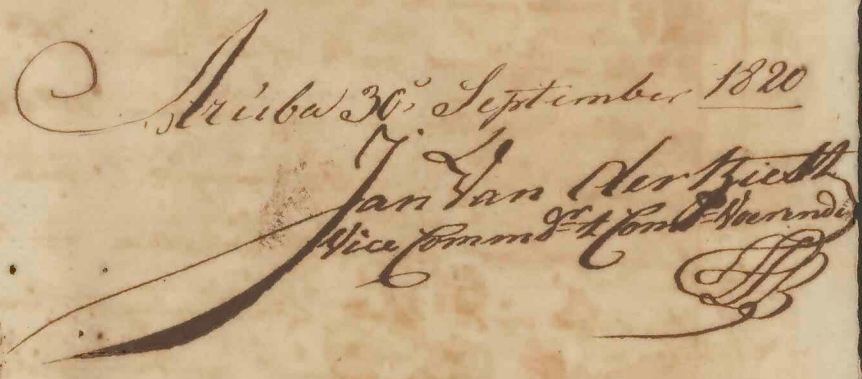 Arúba 30s September 1820
Jan Van der Biest
Vice Commdr t Comdo Voerende